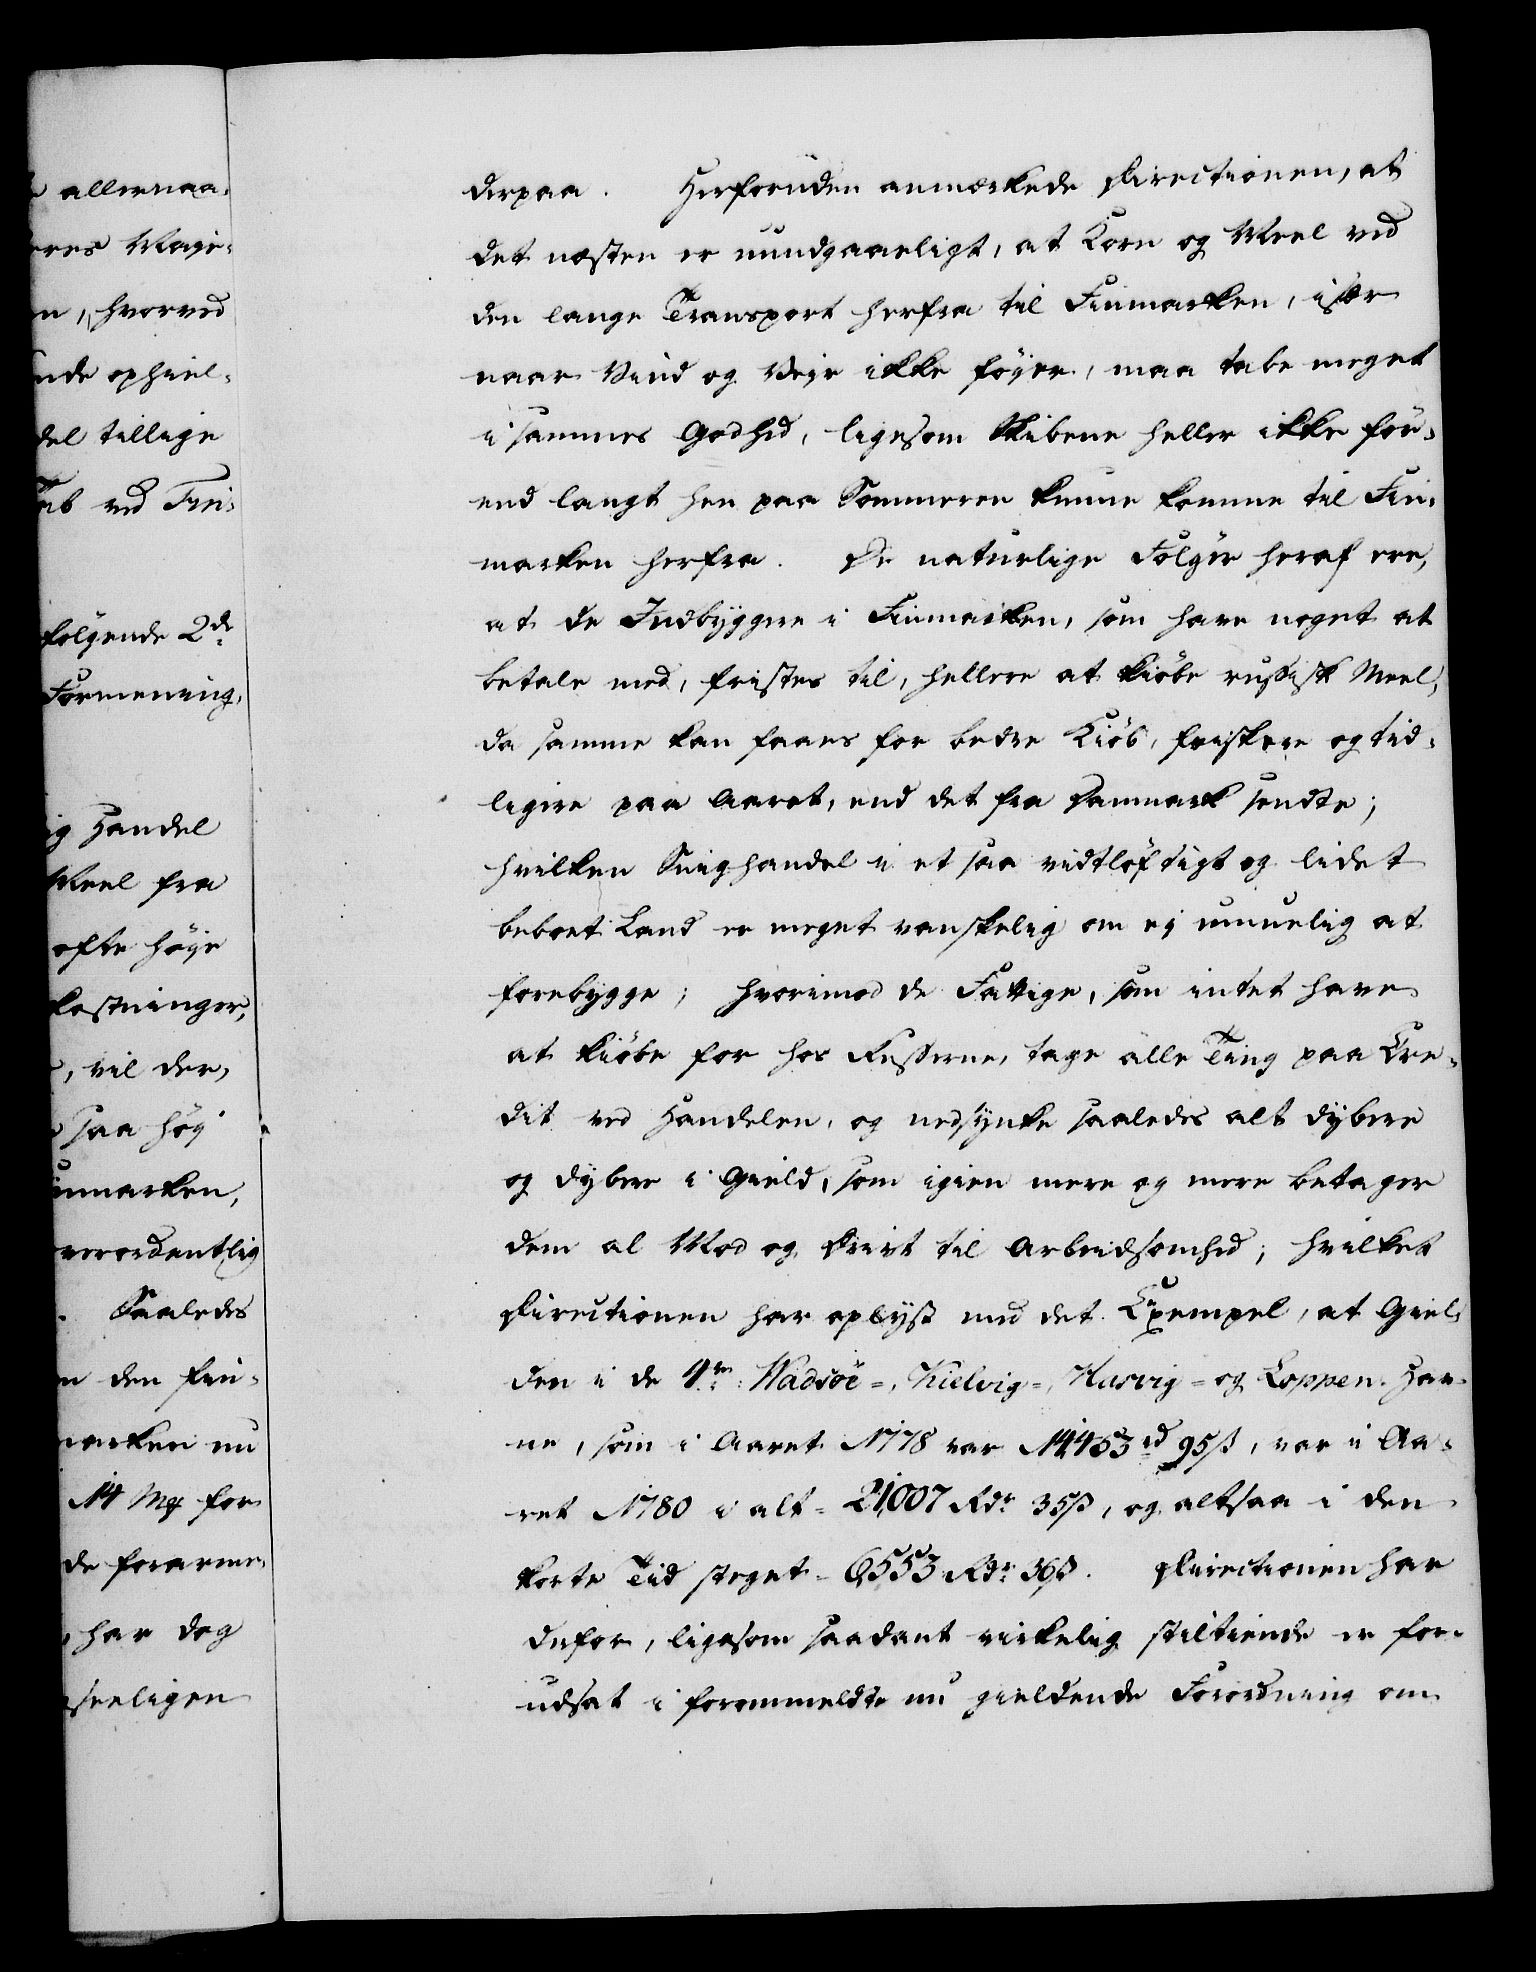 allernaa-
eres Maje-
en, hvorved
ende ophiel-
del tillige
Tab ved Fin-
følgende 2de
Formening,
ig Handel
Meel fra
ofte høye
kostninger,
, vil der,
saa høy
inmarken,
verordentlig
. Saaledes
n den fin-
marken nu
14 Mk for
de forarme-
, har dog
seeligen
derpaa. Herforuden anmærkede Directionen, at
det næsten er uundgaaeligt, at Korn og Meel ved
den lange Transport herfra til Finmarken, især
naar Vind og Veyr ikke føyer, maa tabe meget
i sammes Godhed, ligesom Skibene heller ikke før-
end langt hen paa Sommeren kunne komme til Fin-
marken herfra. De naturlige Følger heraf ere,
at de Indbyggere i Finmarken, som have noget at
betale med, fristes til, hellere at kiøbe russisk Meel,
da samme kan faaes for bedre Kiøb, friskere og tid-
ligere paa Aaret, end det fra Danmark sendte;
hvilken Snighandel i et saa vidtløftigt og lidet
beboet Land er meget vanskelig om ej umuelig at
forebygge; hvorimod de Fattige, som intet have
at kiøbe for hos Russerne, tage alle Ting paa Cre-
dit ved Handelen, og nedsynke saaledes alt dybere
og dybere i Gield, som igien mere og mere betager
dem al Mod og Drivt til Arbeidsomhed; hvilket
Directionen har oplyst med det Exempel, at Giel-
den i de 4re: Wadsöe-, Kielvig-, Hasvig- og Loppen-Hav-
ne, som i Aaret 1778 var 14,453 rd 95 ß, var i Aa-
ret 1780 i alt = 21,007 Rdr 35 ß, og altsaa i den
korte Tid steget = 6,553 Rdr 36 ß. Directionen har
derfor, ligesom saadant virkelig stiltiende er for-
udsat i forommeldte nu gieldende Forordning om